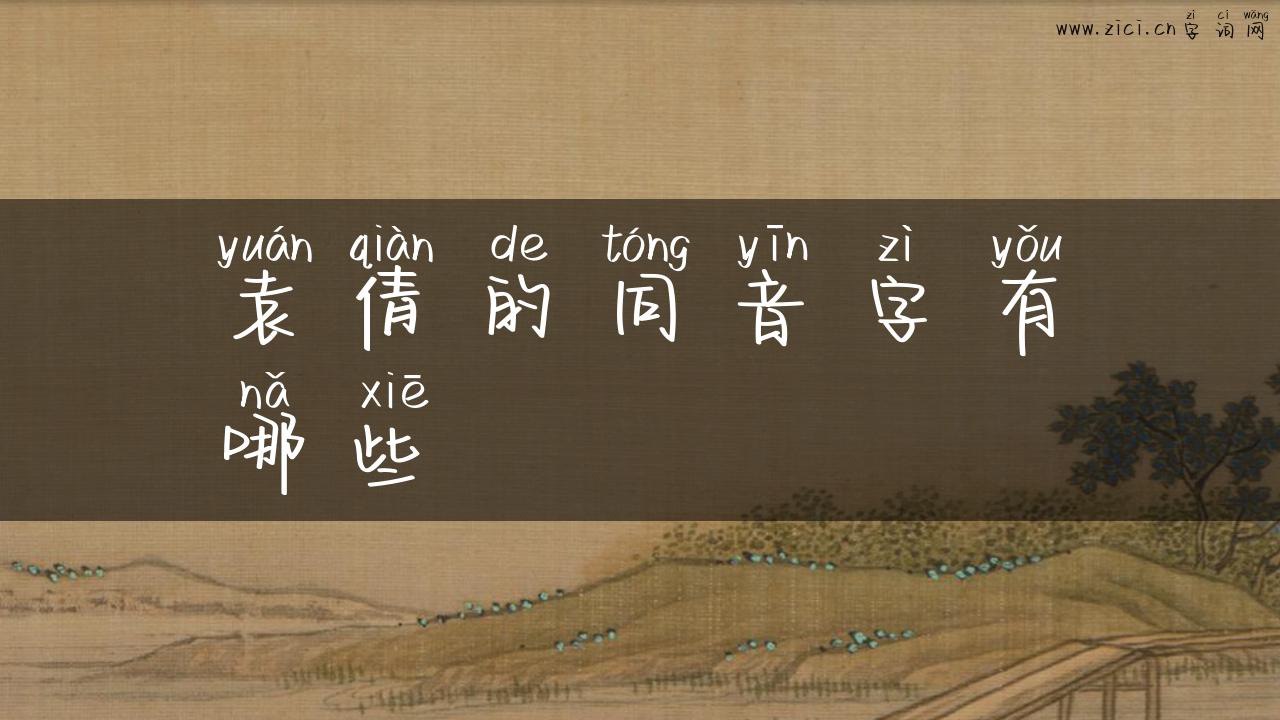 zì cí wǎng
www.zici.cn字词网
yuán qiàn de tóng yīn zì yǒu
袁倩的同音字有
nǎ xiē
哪些